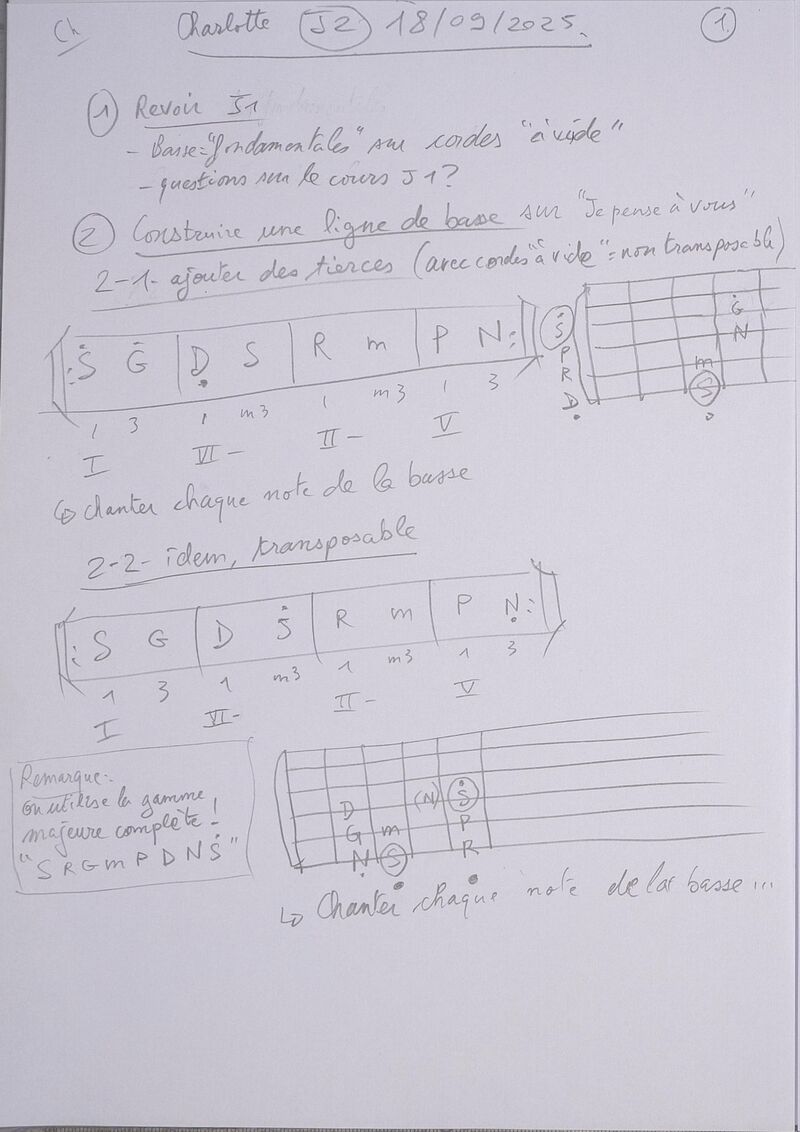 Ch Charlotte J2 18/09/2025. 1
1 Revoir J1
- Basse="fondamentales" sur cordes "à vide"
- questions sur le cours J1?
2 Construire une ligne de basse sur "Je pense à vous"
2-1- ajouter des tierces (avec cordes "à vide"=non transposable)
:Ṡ Ġ | Ḍ S | R m | P N:
1 3 1 m3 1 m3 1 3
I VI- II- V
Ṡ Ġ
P N
R m
Ḍ S
↳ chanter chaque note de la basse
2-2- idem, transposable
: S G | D Ṡ | R m | P Ṇ:
1 3 1 m3 1 m3 1 3
I VI- II- V
Remarque:
on utilise la gamme
majeure complète!
"S R G m P D N Ṡ"
D (N) Ṡ
G m P
Ṇ S R
↳ Chanter chaque note de la basse...